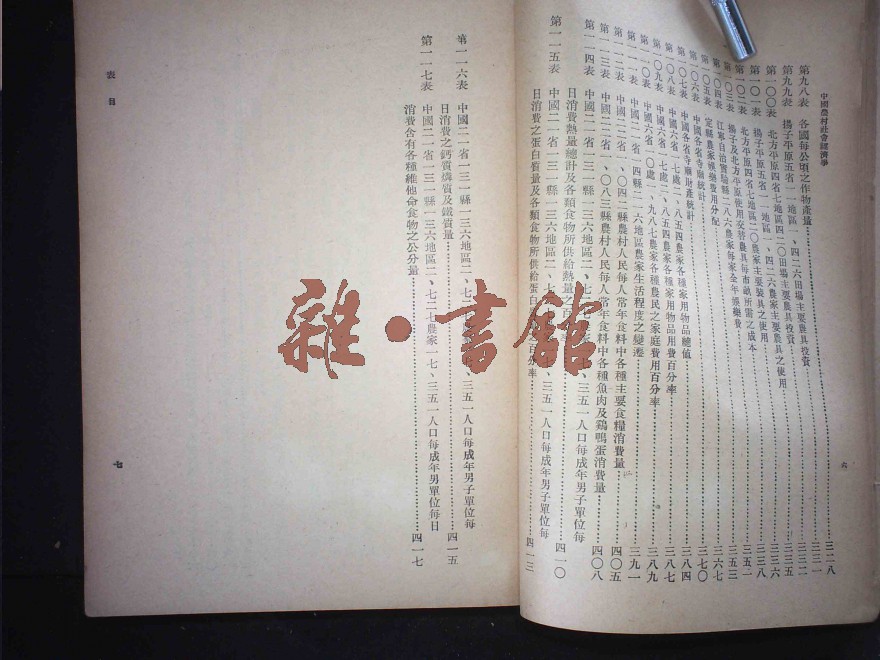 中國農村社會經濟學
第九八表 各國每公頃之作物產量……三一八
第九九表 揚子平原五省一一地區一、四二六田場主要農具投資
第一〇〇表 北方平原四省七地區四二〇田場主要農具投資
第一〇一表 揚子平原五省一一地區一、四二六農家主要農具之使用
第一〇二表 北方平原四省七地區四二〇農家主要農具之使用
第一〇三表 揚子及北方平原使用安替農具每市畝所需之成本
第一〇四表 江寧自治實驗縣二八六農家每家全年娛樂費……三五三
第一〇五表 定縣農家娛樂費用分配……三六七
第一〇六表 中國各省寺廟統計……三七〇
第一〇七表 中國各省寺廟財產統計……三八四
第一〇八表 中國六省一七處二、八五四農家各種家用物品總值……三八七
第一〇九表 中國六省一七處二、八五四農家各種家用物品用費百分率……三八九
第一一〇表 中國六省一〇處一、九八七農家各種農民之家庭費用百分率
第一一一表 中國二一省二一四縣二一六地區農家生活程度之變遷……三九一
第一一二表 中國二二省一、〇四二縣農村人民每人常年食料中各種主要食糧消費量……四〇五
第一一三表 中國二二省一、〇八三縣農村人民每人常年食料中各種魚肉及鷄鴨蛋消費量……四〇八
第一一四表 中國二一省一三一縣一三六地區二、七二七農家一七、三五一人口每成年男子單位每
日消費熱量總計及各類食物所供給熱量之百分率……四一〇
第一一五表 中國二一省一三一縣一三六地區二、七二七農家一七、三五一人口每成年男子單位每
日消費之蛋白質量及各類食物所供給蛋白質之百分率……四一三
六
第一一六表 中國二一省一三一縣一三六地區二、七二七農家一七、三五一人口每成年男子單位每
日消費之鈣質燐質及鐵質量……四一五
第一一七表 中國二一省一三一縣一三六地區二、七二七農家一七、三五一人口每成年男單位每日
消費含有各種維他命食物之公分量……四一七
表目
七
雜·書館